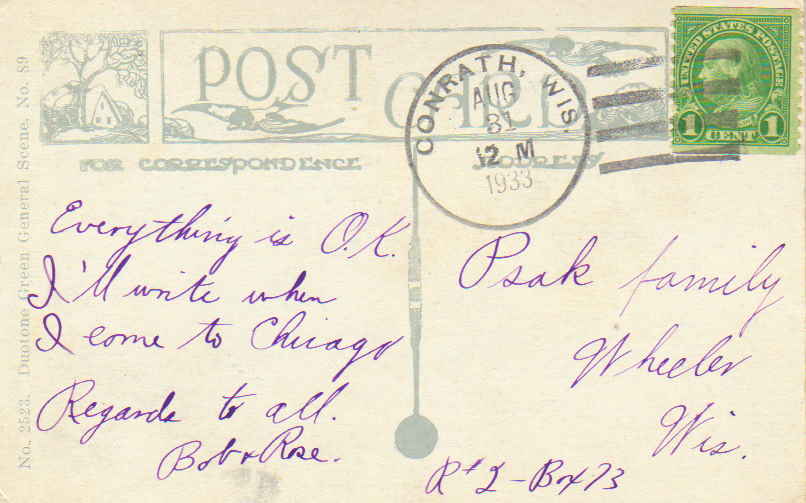 POST CARD
UNITED STATES POSTAGE
1 CENT 1
CONRATH, WIS.
AUG
31
12 M
1933
FOR CORRESPONDENCE
ADDRESS
No. 2523. Duotone Green General Scene, No. S9
Everything is O.K.
I'll write when
I come to Chicago
Regards to all.
Bob & Rose.
Psak family
Wheeler
Wis.
R# 2 - Box 73